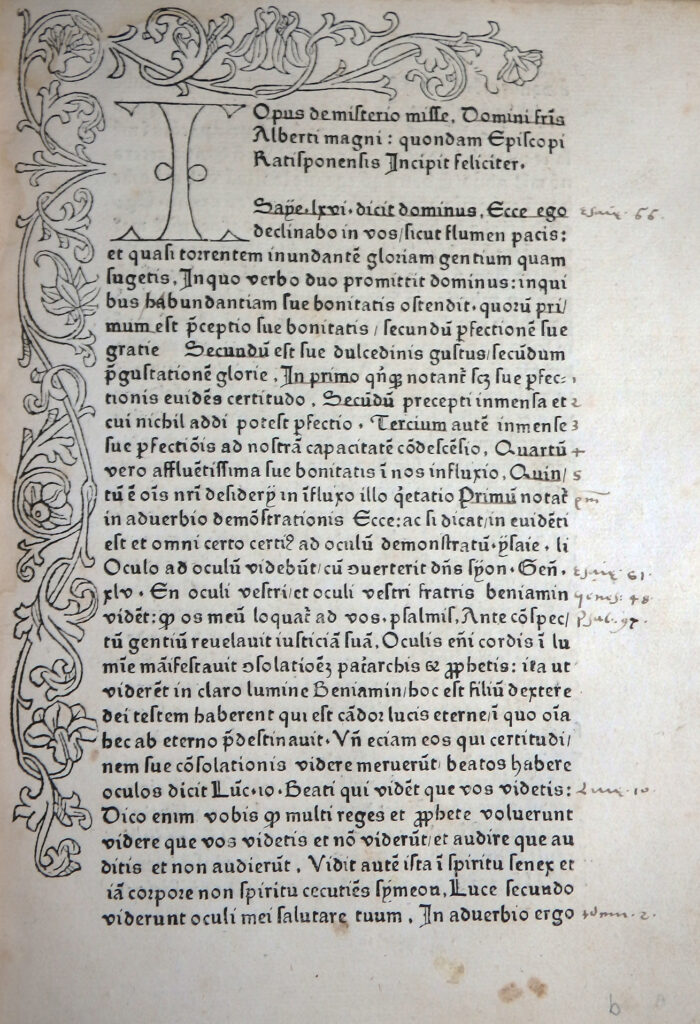 Opus de misterio misse. Domini fr̃is
Alberti magni: quondam Episcopi
Ratisponensis Incipit feliciter.
I
Saỹe. lxvi. dicit dominus. Ecce ego
declinabo in vos/sicut flumen pacis:
et quasi torrentem inundantē gloriam gentium quam
sugetis. In quo verbo duo promittit dominus: in qui
bus habundantiam sue bonitatis ostendit. quorū pri/
mum est p̄ceptio sue bonitatis / secundū ꝑfectionē sue
gratie Secundū est sue dulcedinis gustus/secūdum
p̄gustationē glorie. In primo notant̄ scꝫ sue ꝑfec:
tionis evidēs certitudo. Secūdū precepti inmensa et
cui nichil addi potest ꝑfectio. Tercium autē inmense
sue ꝑfectiōis ad nostrā capacitatē cōdescēsio. Quartū
vero affluētissima sue bonitatis ī nos influxio. Quin/
tū ē oīs nr̄i desiderÿ in īfluxo illo q̇etatio Primū notat̄
in adverbio demōstrationis Ecce: ac si dicat/in evidēti
est et omni certo certiꝰ ad oculū demonstratū. ẏsaie. li
Oculo ad oculū videbūt/cū ɔverterit dn̄s sẏon. Geñ.
xlv. En oculi vestri/et oculi vestri fratris beniamin
vidēt: ꝙ os meū loquat̄ ad vos. psalmis. Ante cōspec/
tū gentiū revelavit iusticiā suā. Oculis em̄i cordis ī lu
mīe māifestavit ɔsolationēꝫ pat̄archis & ꝓphetis: ita ut
viderēt in claro lumine Beniamin/hoc est filiū dextere
dei testem haberent qui est cādor lucis eterne/ī quo oīa
hec ab eterno p̄destinavit. Vn̄ eciam eos qui certitudi/
nem sue cōsolationis videre meruerūt/ beatos habere
oculos dicit Lūc. 10. Beati qui vidēt que vos videtis:
Dico enim vobis ꝙ multi reges et ꝓphete voluerunt
videre que vos videtis et nō viderūt/et audire que au
ditis et non audierūt. Vidit autē ista ī spiritu senex et
iā corpore non spiritu cecutiēs sẏmeon. Luce secundo
viderunt oculi mei salutare tuum. In adverbio ergo
2
3
4
5
b